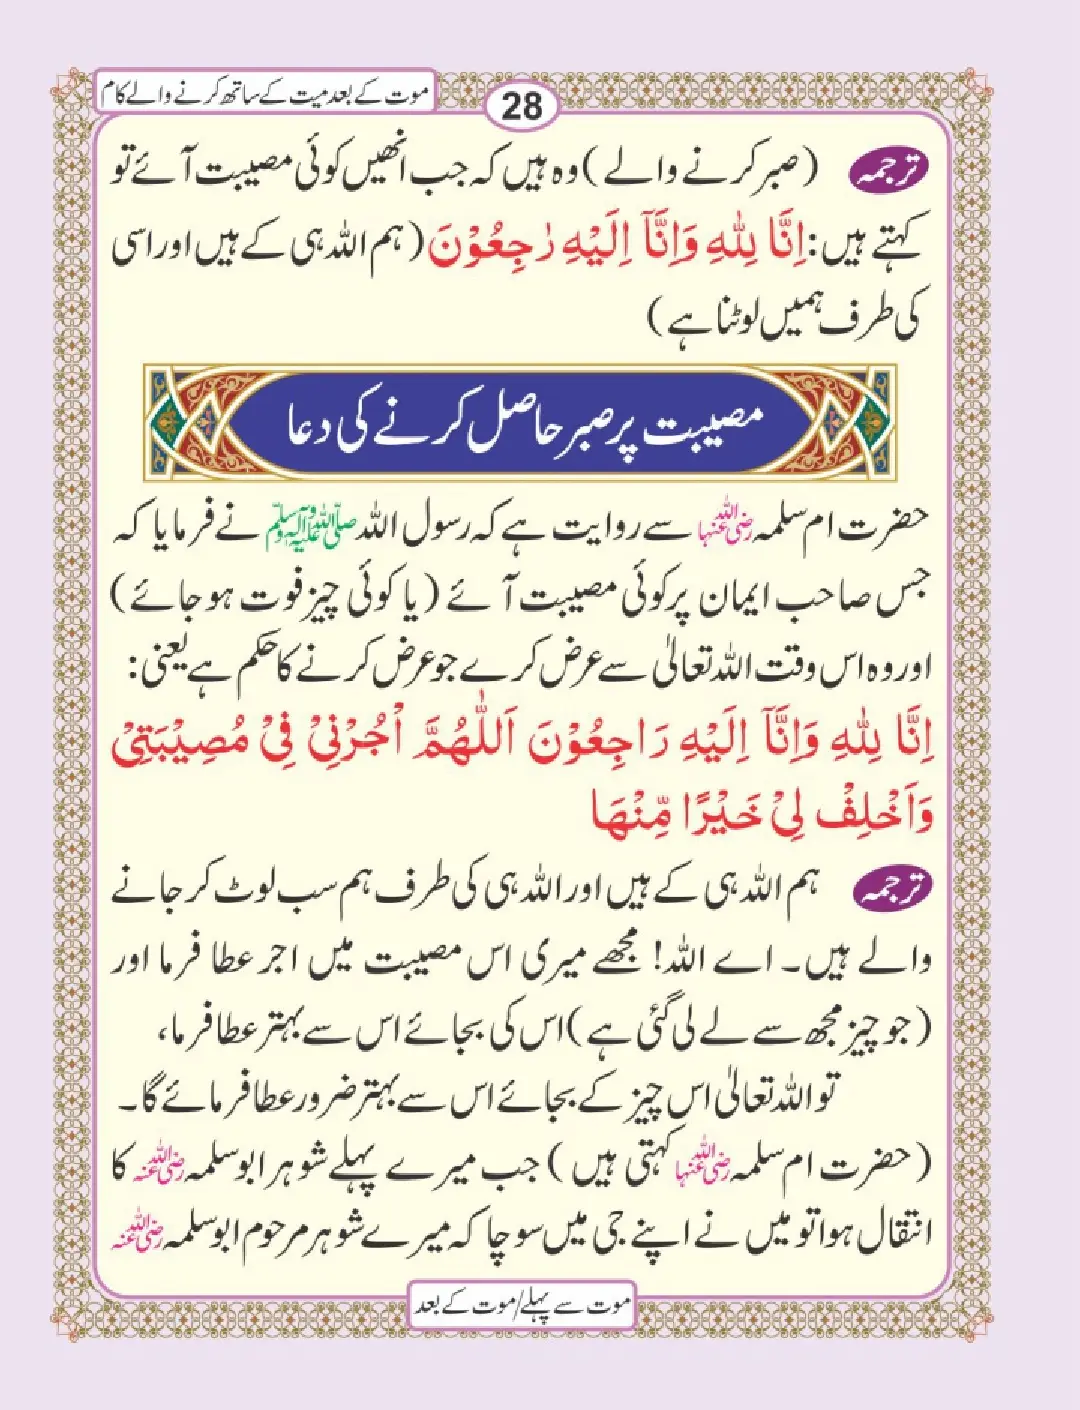 موت کے بعد میت کے ساتھ کرنے والے کام
28
ترجمہ (صبر کرنے والے) وہ ہیں کہ جب انھیں کوئی مصیبت آئے تو
کہتے ہیں: اِنَّا لِلّٰهِ وَاِنَّآ اِلَیْهِ رٰجِعُوْنَ (ہم اللہ ہی کے ہیں اور اسی
کی طرف ہمیں لوٹنا ہے)
مصیبت پر صبر حاصل کرنے کی دعا
حضرت ام سلمہ رضی اللہ عنہا سے روایت ہے کہ رسول اللہ صلی اللہ علیہ وآلہ وسلم نے فرمایا کہ
جس صاحب ایمان پر کوئی مصیبت آئے (یا کوئی چیز فوت ہو جائے)
اور وہ اس وقت اللہ تعالیٰ سے عرض کرے جو عرض کرنے کا حکم ہے یعنی:
اِنَّا لِلّٰهِ وَاِنَّآ اِلَیْهِ رَاجِعُوْنَ اَللّٰهُمَّ اْجُرْنِیْ فِیْ مُصِیْبَتِیْ
وَاَخْلِفْ لِیْ خَیْرًا مِّنْهَا
ترجمہ ہم اللہ ہی کے ہیں اور اللہ ہی کی طرف ہم سب لوٹ کر جانے
والے ہیں۔ اے اللہ! مجھے میری اس مصیبت میں اجر عطا فرما اور
(جو چیز مجھ سے لے لی گئی ہے) اس کی بجائے اس سے بہتر عطا فرما،
تو اللہ تعالیٰ اس چیز کے بجائے اس سے بہتر ضرور عطا فرمائے گا۔
(حضرت ام سلمہ رضی اللہ عنہا کہتی ہیں) جب میرے پہلے شوہر ابو سلمہ رضی اللہ عنہ کا
انتقال ہوا تو میں نے اپنے جی میں سوچا کہ میرے شوہر مرحوم ابو سلمہ رضی اللہ عنہ
موت سے پہلے/موت کے بعد